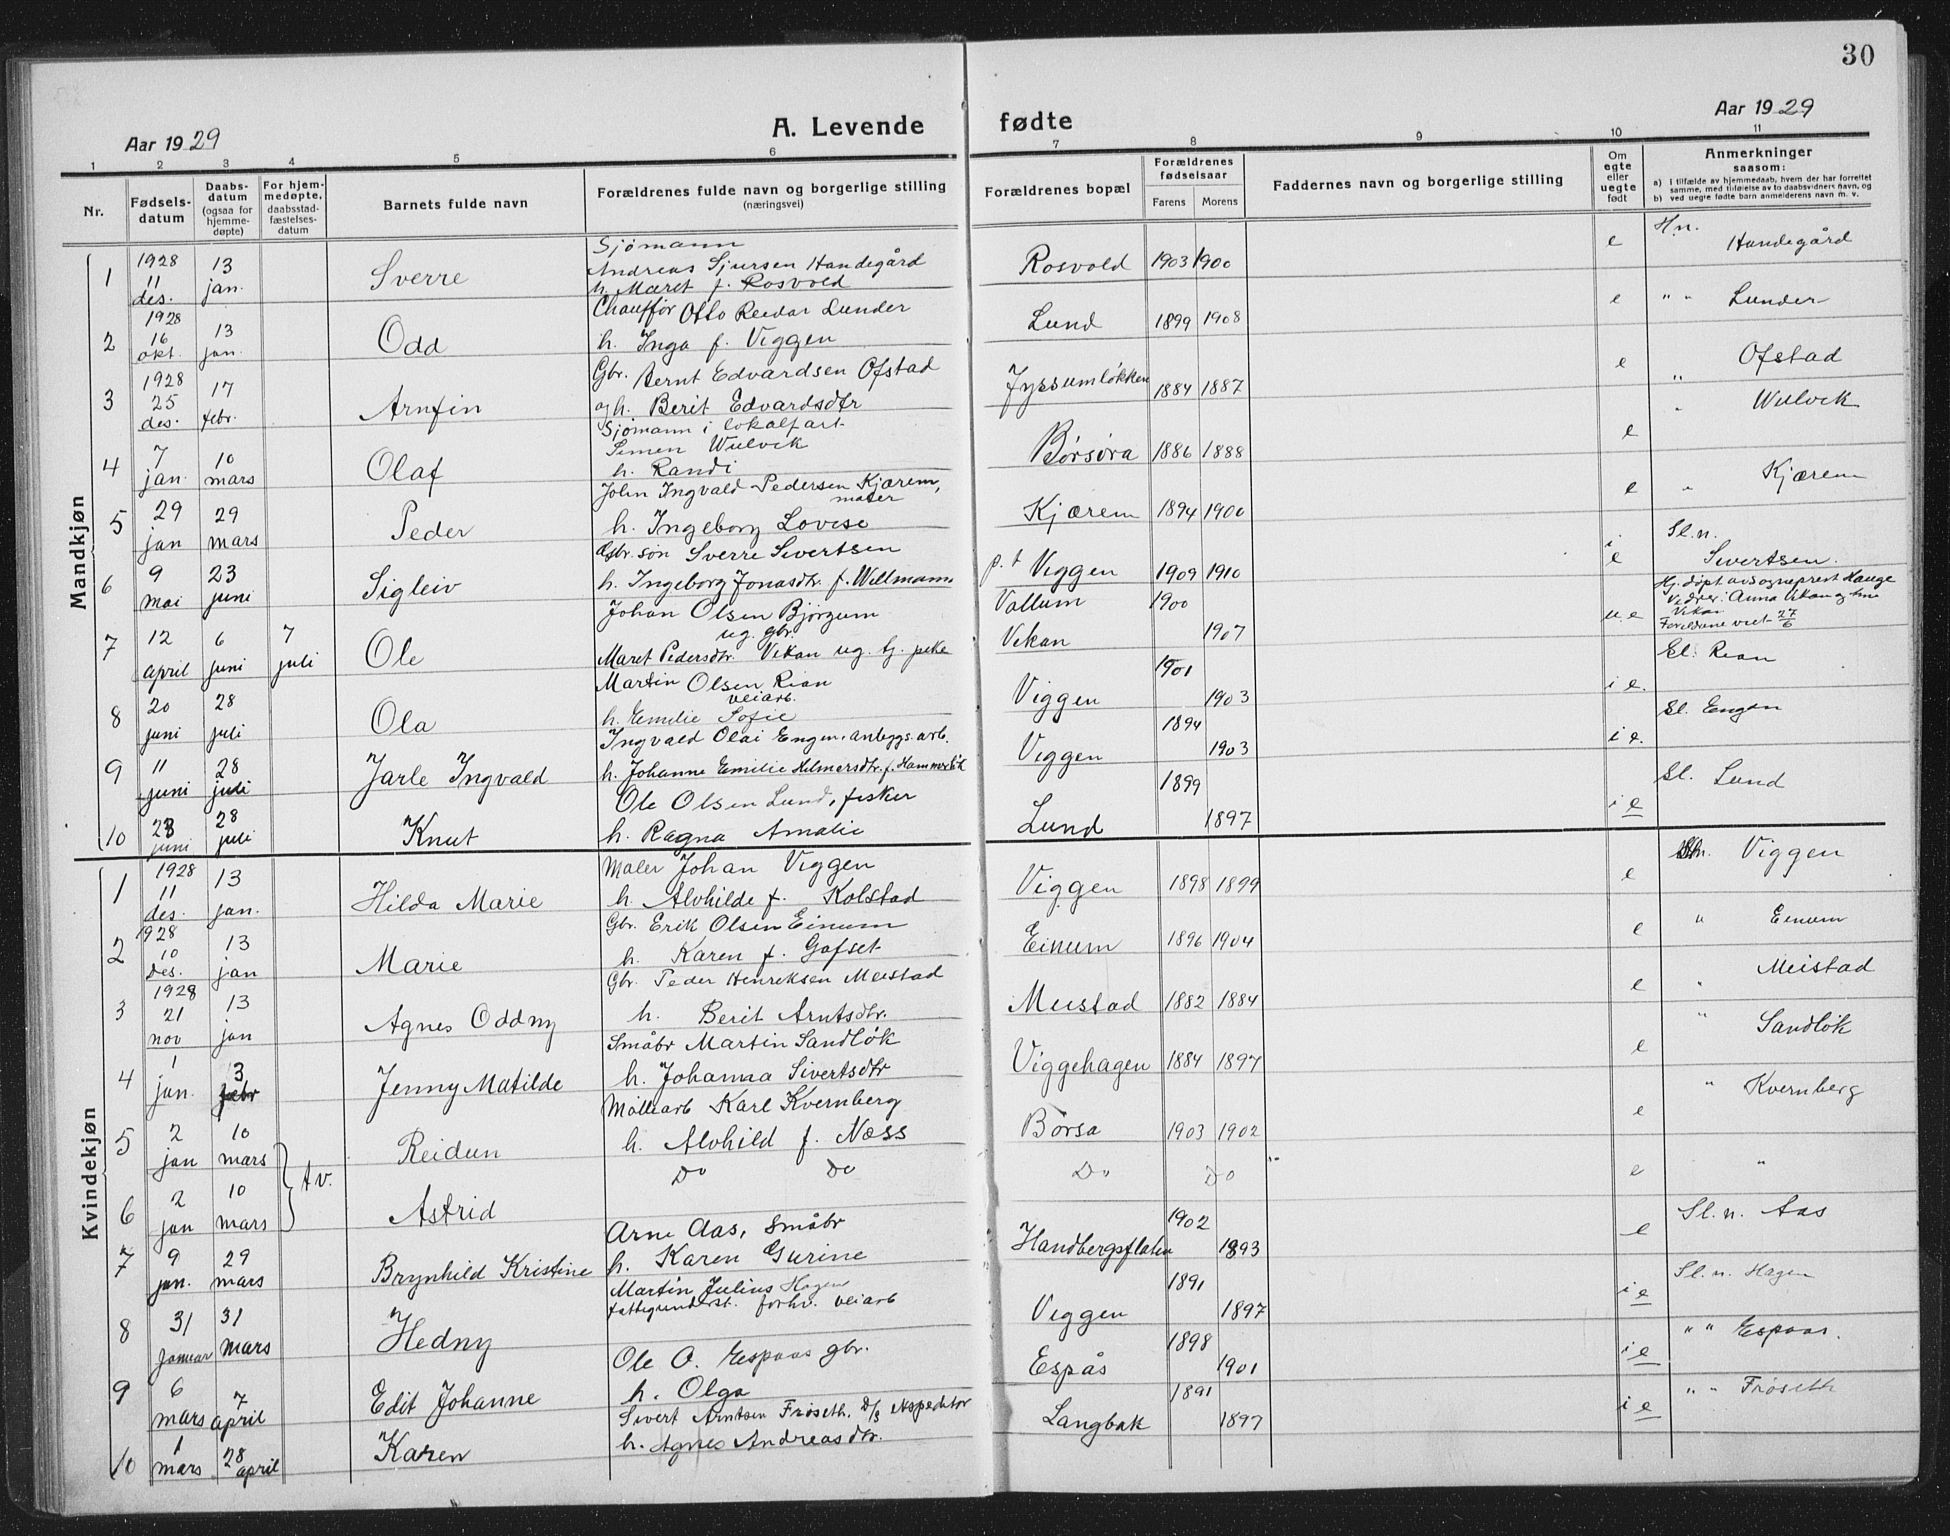 30
Aar 1929
A. Levende fødte
Aar 1929
1 2 3 4 5 6 7 8 9 10 11
Nr.
Fødselsdatum
Daabsdatum (ogsaa for hjemmedøpte)
For hjemmedøpte, daabsstadfæstelsesdatum
Barnets fulde navn
Forældrenes fulde navn og borgerlige stilling (næringsvei)
Forældrenes bopæl
Forældrenes fødselsaar
Farens Morens
Faddernes navn og borgerlige stilling
Om egte eller uegte født
Anmerkninger saasom:
a) i tilfælde av hjemmedaab, hvem der har forrettet samme, med tilføielse av to daabsvidners navn, og
b) ved uegte fødte barn anmelderens navn m. v.
Mandkjøn
1 1928 11 des. 13 jan. Sverre Sjömann Andreas Sjursen Handegård h. Maret f. Rosvold Rosvold 1903 1900 e H.n. Handegård
2 1928 16 okt. 13 jan. Odd Chauffør Otto Reidar Lunder h. Inga f. Viggen Lund 1899 1908 e " " Lunder
3 1928 25 des. 17 febr. Arnfin Gbr. Bernt Edvardsen Ofstad og h. Berit Edvardsdtr Jyssumløkken 1884 1887 e " Ofstad
4 7 jan. 10 mars Olaf Sjömann i lokalfart Simen Wulvik h. Randi Børsøra 1886 1888 e " Wulvik
5 29 jan 29 mars Peder John Ingvald Pedersen Kjærem, maler h. Ingeborg Lovise Kjærem 1894 1900 e " Kjærem
6 9 mai 23 juni Sigleiv Gbr. søn Sverre Sivertsen h. Ingeborg Jonasdtr. f. Willmann p.t Viggen 1909 1910 i e Sl.n. Sivertsen.
7 12 april 6 juni 7 juli Ole Johan Olsen Bjørgum ug. gbr. Maret Pedersdtr. Vikan ug. tj. pike Vollum 1900 Vikan 1907 u e Hj. döpt av sogneprest Hauge Vidner: Anna Vikan og Vikan Foreldrene viet 27/6
8 20 juni 28 juli Ola Martin Olsen Rian veiarb. h. Emilie Sofie Viggen 1901 1903 i e. Sl. Rian
9 11 juni 28 juli Jarle Ingvald Ingvald Olai Engen, anleggs.arb. h. Johanne Emilie Hilmersdtr. f. Hammerlik Viggen 1894 1903 i e. Sl. Engen
10 23 juni 28 juli Knut Ole Olsen Lund, fisker h. Ragna Amalie Lund 1899 1897 i e Sl. Lund
Kvindekjøn
1 1928 11 des. 13 jan. Hilda Marie Maler Johan Viggen h. Alvhilde f. Kolstad Viggen 1898 1899 e Hn. Viggen
2 1928 10 des. 13 jan Marie Gbr. Erik Olsen Einum h. Karen f. Gafset Einum 1896 1904 e " Einum
3 1928 21 nov 13 jan Agnes Oddny Gbr. Peder Henriksen Meistad h. Berit Arntsdtr. Meistad 1882 1884 e " Meistad
4 1 jan. 3 febr Jenny Matilde Småbr Martin Sandløk h. Johanna Sivertsdtr Viggehagen 1884 1897 e " Sandløk
5 2 jan 10 mars Reidun Möllearb Karl Kvernberg h. Alvhild f. Næss Børsa 1903 1902 e " Kvernberg
tv.
6 2 jan 10 mars Astrid Do Do Do Do " e "
7 9 jan. 29 mars Brynhild Kristine Arne Aas, Småbr h. Karen Gurine Handbergsflaten 1902 1893 e Sl. n. Aas
8 31 januar 31 mars Hedny Martin Julius Hagen fattigunderst. forhv. veiarb Viggen 1891 1897 i e Sl. n. Hagen
9 6 mars 7 april Edit Johanne Ole O. Espaas gbr. h. Olga Espås 1898 1901 i e " " Espaas.
10 1 mars 28 april Karen Sivert Arntsen Frøseth, D/s expeditør h. Agnes Andreasdtr. Langbak 1891 1897 i e " " Frøseth